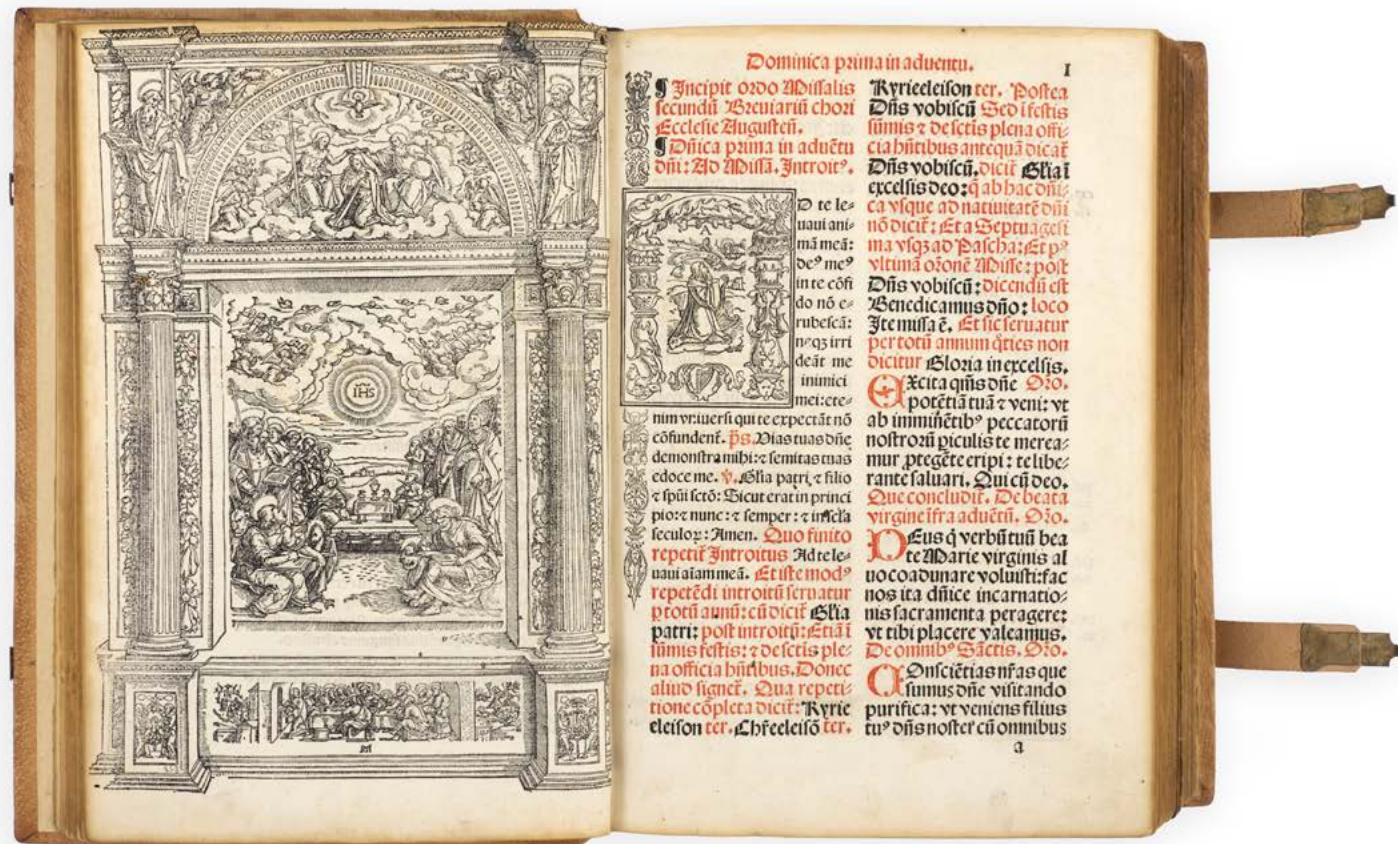 IHS
Dominica prima in aduentu.
I
¶ Incipit ordo Missalis
secundũ Breuiariũ chori
Ecclesie Augusteñ.
¶ Dñica prima in aduẽtu
dñi: Ad Missã. Introitꝰ.
D te le⸗
uaui ani⸗
mã meã:
deꝰ meꝰ
in te cõfi
do nõ e⸗
rubescã:
neqꝫ irri
deãt me
inimici
mei: ete⸗
nim vniuersi qui te expectãt nõ
cõfundent̃. p̃s. Vias tuas dñe
demonstra mihi: ⁊ semitas tuas
edoce me. ℣. Glia patri ⁊ filio
⁊ spũi sctõ: Sicut erat in princi
pio: ⁊ nunc: ⁊ semper: ⁊ in scła
seculoꝝ: Amen. Quo finito
repetit̃ Introitus Ad te le⸗
uaui aĩam meã. Et iste modꝰ
repetẽdi introitũ seruatur
ꝑ totũ annũ: cũ dicit̃ Glia
patri: post introitũ: Etiã ĩ
sũmis festis: ⁊ de sctis ple⸗
na officia hñtibus. Donec
aliud signet̃. Qua repeti⸗
tione cõpleta dicit̃: Kyrie
eleison ter. Chr̃eeleisõ ter.
Kyrieeleison ter. Postea
Dñs vobiscũ Sed ĩ festis
sũmis ⁊ de sctis plena offi⸗
cia hñtibus antequã dicat̃
Dñs vobiscũ. dicit̃ Glia ĩ
excelsis deo: q̃ ab hac dñi⸗
ca vsque ad natiuitatẽ dñi
nõ dicit̃: Et a Septuagesi
ma vsqꝫ ad Pascha: Et pꝰ
vltimã or̃onẽ Misse: post
Dñs vobiscũ: dicendũ est
Benedicamus dño: loco
Ite missa ẽ. Et sic seruatur
per totũ annum q̃ties non
dicitur Gloria in excelsis.
Excita q̃ms dñe Oro.
potẽtiã tuã ⁊ veni: vt
ab imminẽtibꝰ peccatorũ
nostrorũ ꝑiculis te merea⸗
mur ꝓtegẽte eripi: te libe⸗
rante saluari. Qui cũ deo.
Que concludit̃. De beata
virgine ĩfra aduẽtũ. Oro.
DEus q̃ verbũ tuũ bea
te Marie virginis al
uo coadunare voluisti: fac
nos ita dñice incarnatio⸗
nis sacramenta peragere:
vt tibi placere valeamus.
De omnibꝰ Sãctis. Oro.
COnsciẽtias nr̃as que
sumus dñe visitando
purifica: vt veniens filius
tuꝰ dñs noster cũ omnibus
a